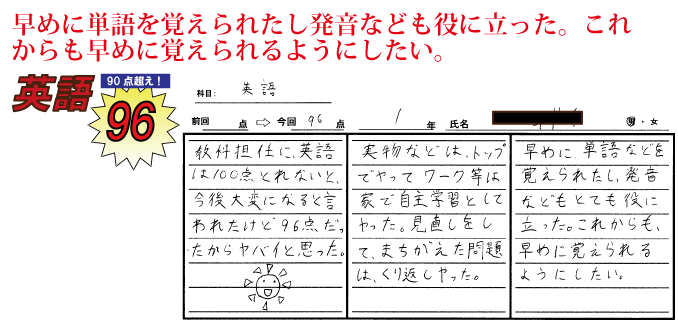 早めに単語を覚えられたし発音なども役に立った。これ
からも早めに覚えられるようにしたい。
英語
90点超え！
96
科目: 英語
前回 点 ⇨ 今回 96 点 1 年 氏名 男・女
教科担任に、英語
は100点とれないと、
今後大変になると言
われたけど96点だっ
たからヤバイと思った。
実物などは、トップ
でやって ワーク等は
家で自主学習として
やった。見直しをし
て、まちがえた問題
は、くり返しやった。
早めに、単語などを
覚えられたし、発音
などもとても役に
立った。これからも、
早めに覚えられる
ようにしたい。